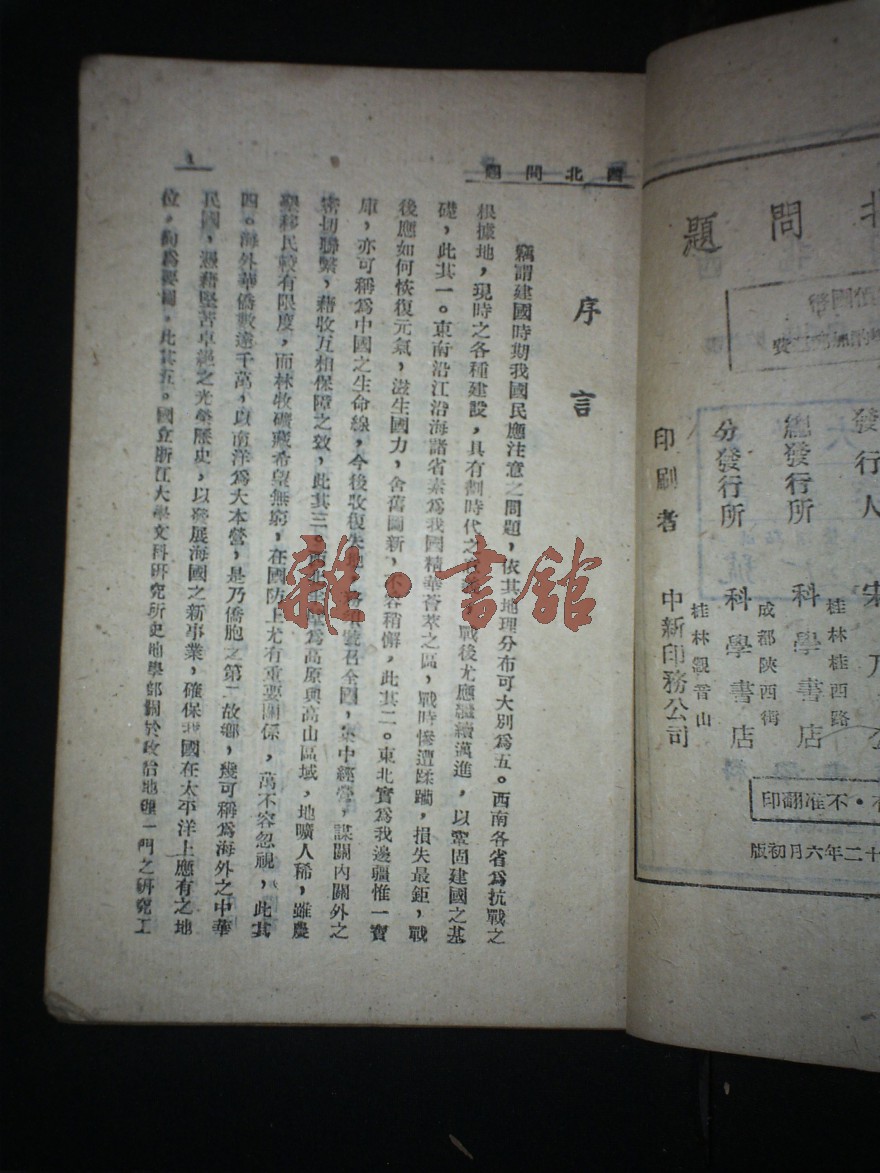 北問題
發行人 宋乃
總發行所 科學書店
桂林桂西路
成都陝西街
分發行所 科學書店
桂林觀音山
印刷者 中新印務公司
不准翻印
十二年六月初版
西北問題
序言
竊謂建國時期我國民應注意之問題，依其地理分布可大別為五。西南各省為抗戰之
根據地，現時之各種建設，具有劃時代之
戰後尤應繼續邁進，以鞏固建國之基
礎，此其一。東南沿江沿海諸省素為我國精華薈萃之區，戰時慘遭蹂躪，損失最鉅，戰
後應如何恢復元氣，滋生國力，舍舊圖新，不容稍懈，此其二。東北實為我邊疆惟一寶
庫，亦可稱為中國之生命線，今後收復失地
號召全國，集中經營，謀關內關外之
密切聯繫，藉收互相保障之效，此其三。
為高原與高山區域，地曠人稀，雖農
墾移民較有限度，而林牧礦藏希望無窮，在國防上尤有重要關係，萬不容忽視，此其
四。海外華僑數逾千萬，以南洋為大本營，是乃僑胞之第二故鄉，幾可稱為海外之中華
民國，憑藉堅苦卓絕之光榮歷史，以發展海國之新事業，確保我國在太平洋上應有之地
位，尚為要圖，此其五。國立浙江大學文科研究所史地學部關於政治地理一門之研究工
1
雜·書館